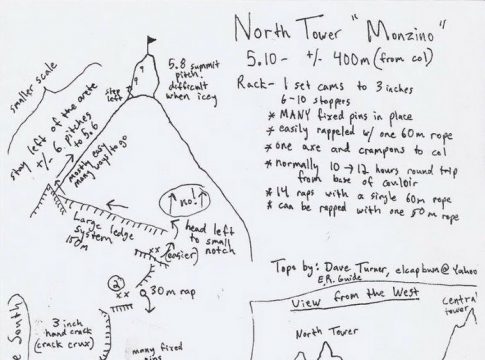 North Tower "Monzino"
5.10- +/- 400m (from col)
Rack- 1 set cams to 3 inches
6-10 stoppers
* MANY fixed pins in place
* easily rappeled w/ one 60m rope
* one axe and crampons to col
* normally 10 → 12 hours round trip
from base of couloir
* 14 raps with a single 60m rope
* can be rapped with one 50m rope
Topo by: Dave Turner, elcapbum@Yahoo
View from the West
Central
tower
North Tower
smaller scale
stay left of the arete
+/- 6 pitches
to 5.6
mostly easy
many ways to go
step
left
5.8 summit
pitch
difficult
when icey
no!
Large ledge
system
150m
head left
to small
notch
(easier)
xx
2
xx
30m rap
3 inch
hand crack
(crack crux)
many fixed
pins
South)